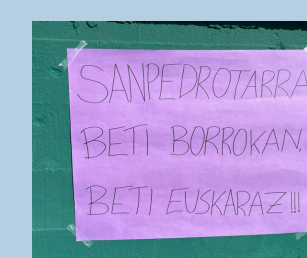 SANPEDROTARRA
BETI BORROKAN,
BETI EUSKARAZ!!!